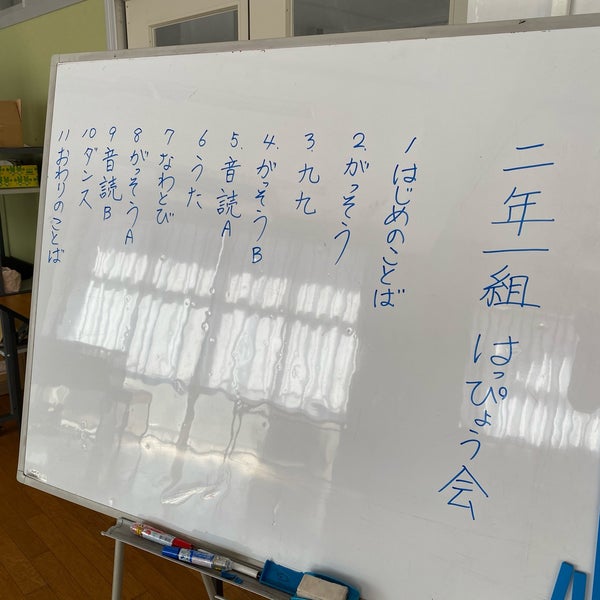 二年一組 はっぴょう会
1 はじめのことば
2. がっそう
3. 九九
4. がっそうB
5. 音読A
6 うた
7 なわとび
8 がっそうA
9 音読B
10 ダンス
11 おわりのことば